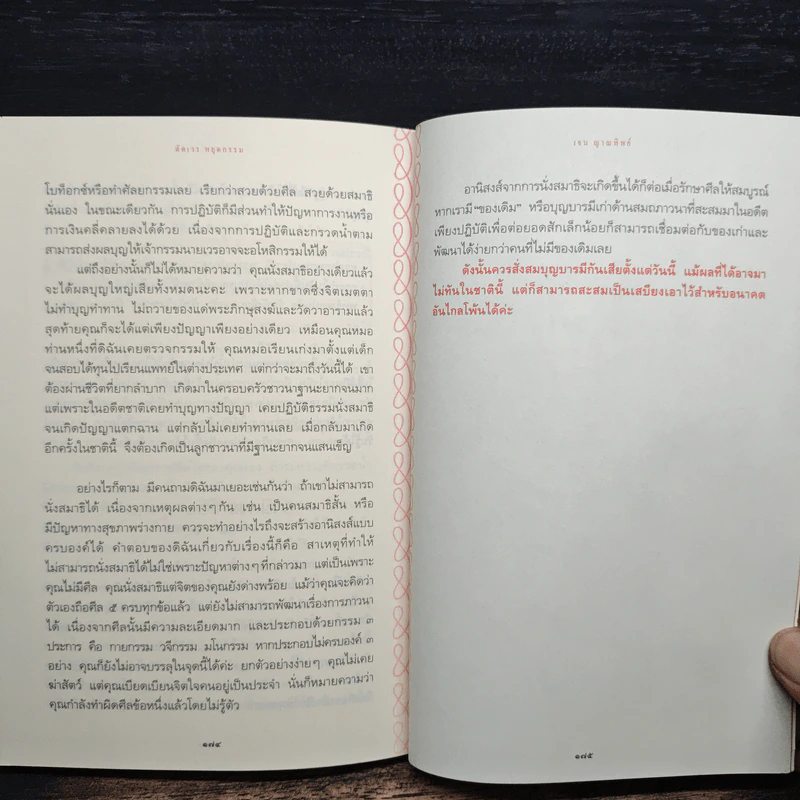 ตัดเวร หยุดกรรม
โบท็อกซ์หรือทำศัลยกรรมเลย เรียกว่าสวยด้วยศีล สวยด้วยสมาธิ
นั่นเอง ในขณะเดียวกัน การปฏิบัติก็มีส่วนทำให้ปัญหาการงานหรือ
การเงินคลี่คลายลงได้ด้วย เนื่องจากการปฏิบัติและกรวดน้ำตาม
สามารถส่งผลบุญให้เจ้ากรรมนายเวรอาจจะอโหสิกรรมให้ได้
แต่ถึงอย่างนั้นก็ไม่ได้หมายความว่า คุณนั่งสมาธิอย่างเดียวแล้ว
จะได้ผลบุญใหญ่เสียทั้งหมดนะคะ เพราะหากขาดซึ่งจิตเมตตา
ไม่ทำบุญทำทาน ไม่ถวายของแด่พระภิกษุสงฆ์และวัดวาอารามแล้ว
สุดท้ายคุณก็จะได้แต่เพียงปัญญาเพียงอย่างเดียว เหมือนคุณหมอ
ท่านหนึ่งที่ดิฉันเคยตรวจกรรมให้ คุณหมอเรียนเก่งมาตั้งแต่เด็ก
จนสอบได้ทุนไปเรียนแพทย์ในต่างประเทศ แต่กว่าจะมาถึงวันนี้ได้ เขา
ต้องผ่านชีวิตที่ยากลำบาก เกิดมาในครอบครัวชาวนาฐานะยากจนมาก
แต่เพราะในอดีตชาติเคยทำบุญทางปัญญา เคยปฏิบัติธรรมนั่งสมาธิ
จนเกิดปัญญาแตกฉาน แต่กลับไม่เคยทำทานเลย เมื่อกลับมาเกิด
อีกครั้งในชาตินี้ จึงต้องเกิดเป็นลูกชาวนาที่มีฐานะยากจนแสนเข็ญ
อย่างไรก็ตาม มีคนถามดิฉันมาเยอะเช่นกันว่า ถ้าเขาไม่สามารถ
นั่งสมาธิได้ เนื่องจากเหตุผลต่างๆ กัน เช่น เป็นคนสมาธิสั้น หรือ
มีปัญหาทางสุขภาพร่างกาย ควรจะทำอย่างไรถึงจะสร้างอานิสงส์แบบ
ครบองค์ได้ คำตอบของดิฉันเกี่ยวกับเรื่องนี้ก็คือ สาเหตุที่ทำให้
ไม่สามารถนั่งสมาธิได้ไม่ใช่เพราะปัญหาต่างๆ ที่กล่าวมา แต่เป็นเพราะ
คุณไม่มีศีล คุณนั่งสมาธิแต่จิตของคุณยังด่างพร้อย แม้ว่าคุณจะคิดว่า
ตัวเองถือศีล ๕ ครบทุกข้อแล้ว แต่ยังไม่สามารถพัฒนาเรื่องการภาวนา
ได้ เนื่องจากศีลนั้นมีความละเอียดมาก และประกอบด้วยกรรม ๓
ประการ คือ กายกรรม วจีกรรม มโนกรรม หากประกอบไม่ครบองค์ ๓
อย่าง คุณก็ยังไม่อาจบรรลุในจุดนี้ได้ค่ะ ยกตัวอย่างง่ายๆ คุณไม่เคย
ฆ่าสัตว์ แต่คุณเบียดเบียนจิตใจคนอยู่เป็นประจำ นั่นก็หมายความว่า
คุณกำลังทำผิดศีลข้อหนึ่งแล้วโดยไม่รู้ตัว
๑๗๔
เจน ญาณทิพย์
อานิสงส์จากการนั่งสมาธิจะเกิดขึ้นได้ก็ต่อเมื่อรักษาศีลให้สมบูรณ์
หากเรามี “ของเดิม” หรือบุญบารมีเก่าด้านสมถภาวนาที่สะสมมาในอดีต
เพียงปฏิบัติเพื่อต่อยอดสักเล็กน้อยก็สามารถเชื่อมต่อกับของเก่าและ
พัฒนาได้ง่ายกว่าคนที่ไม่มีของเดิมเลย
ดังนั้นควรสั่งสมบุญบารมีกันเสียตั้งแต่วันนี้ แม้ผลที่ได้อาจมา
ไม่ทันในชาตินี้ แต่ก็สามารถสะสมเป็นเสบียงเอาไว้สำหรับอนาคต
อันไกลโพ้นได้ค่ะ
๑๗๕